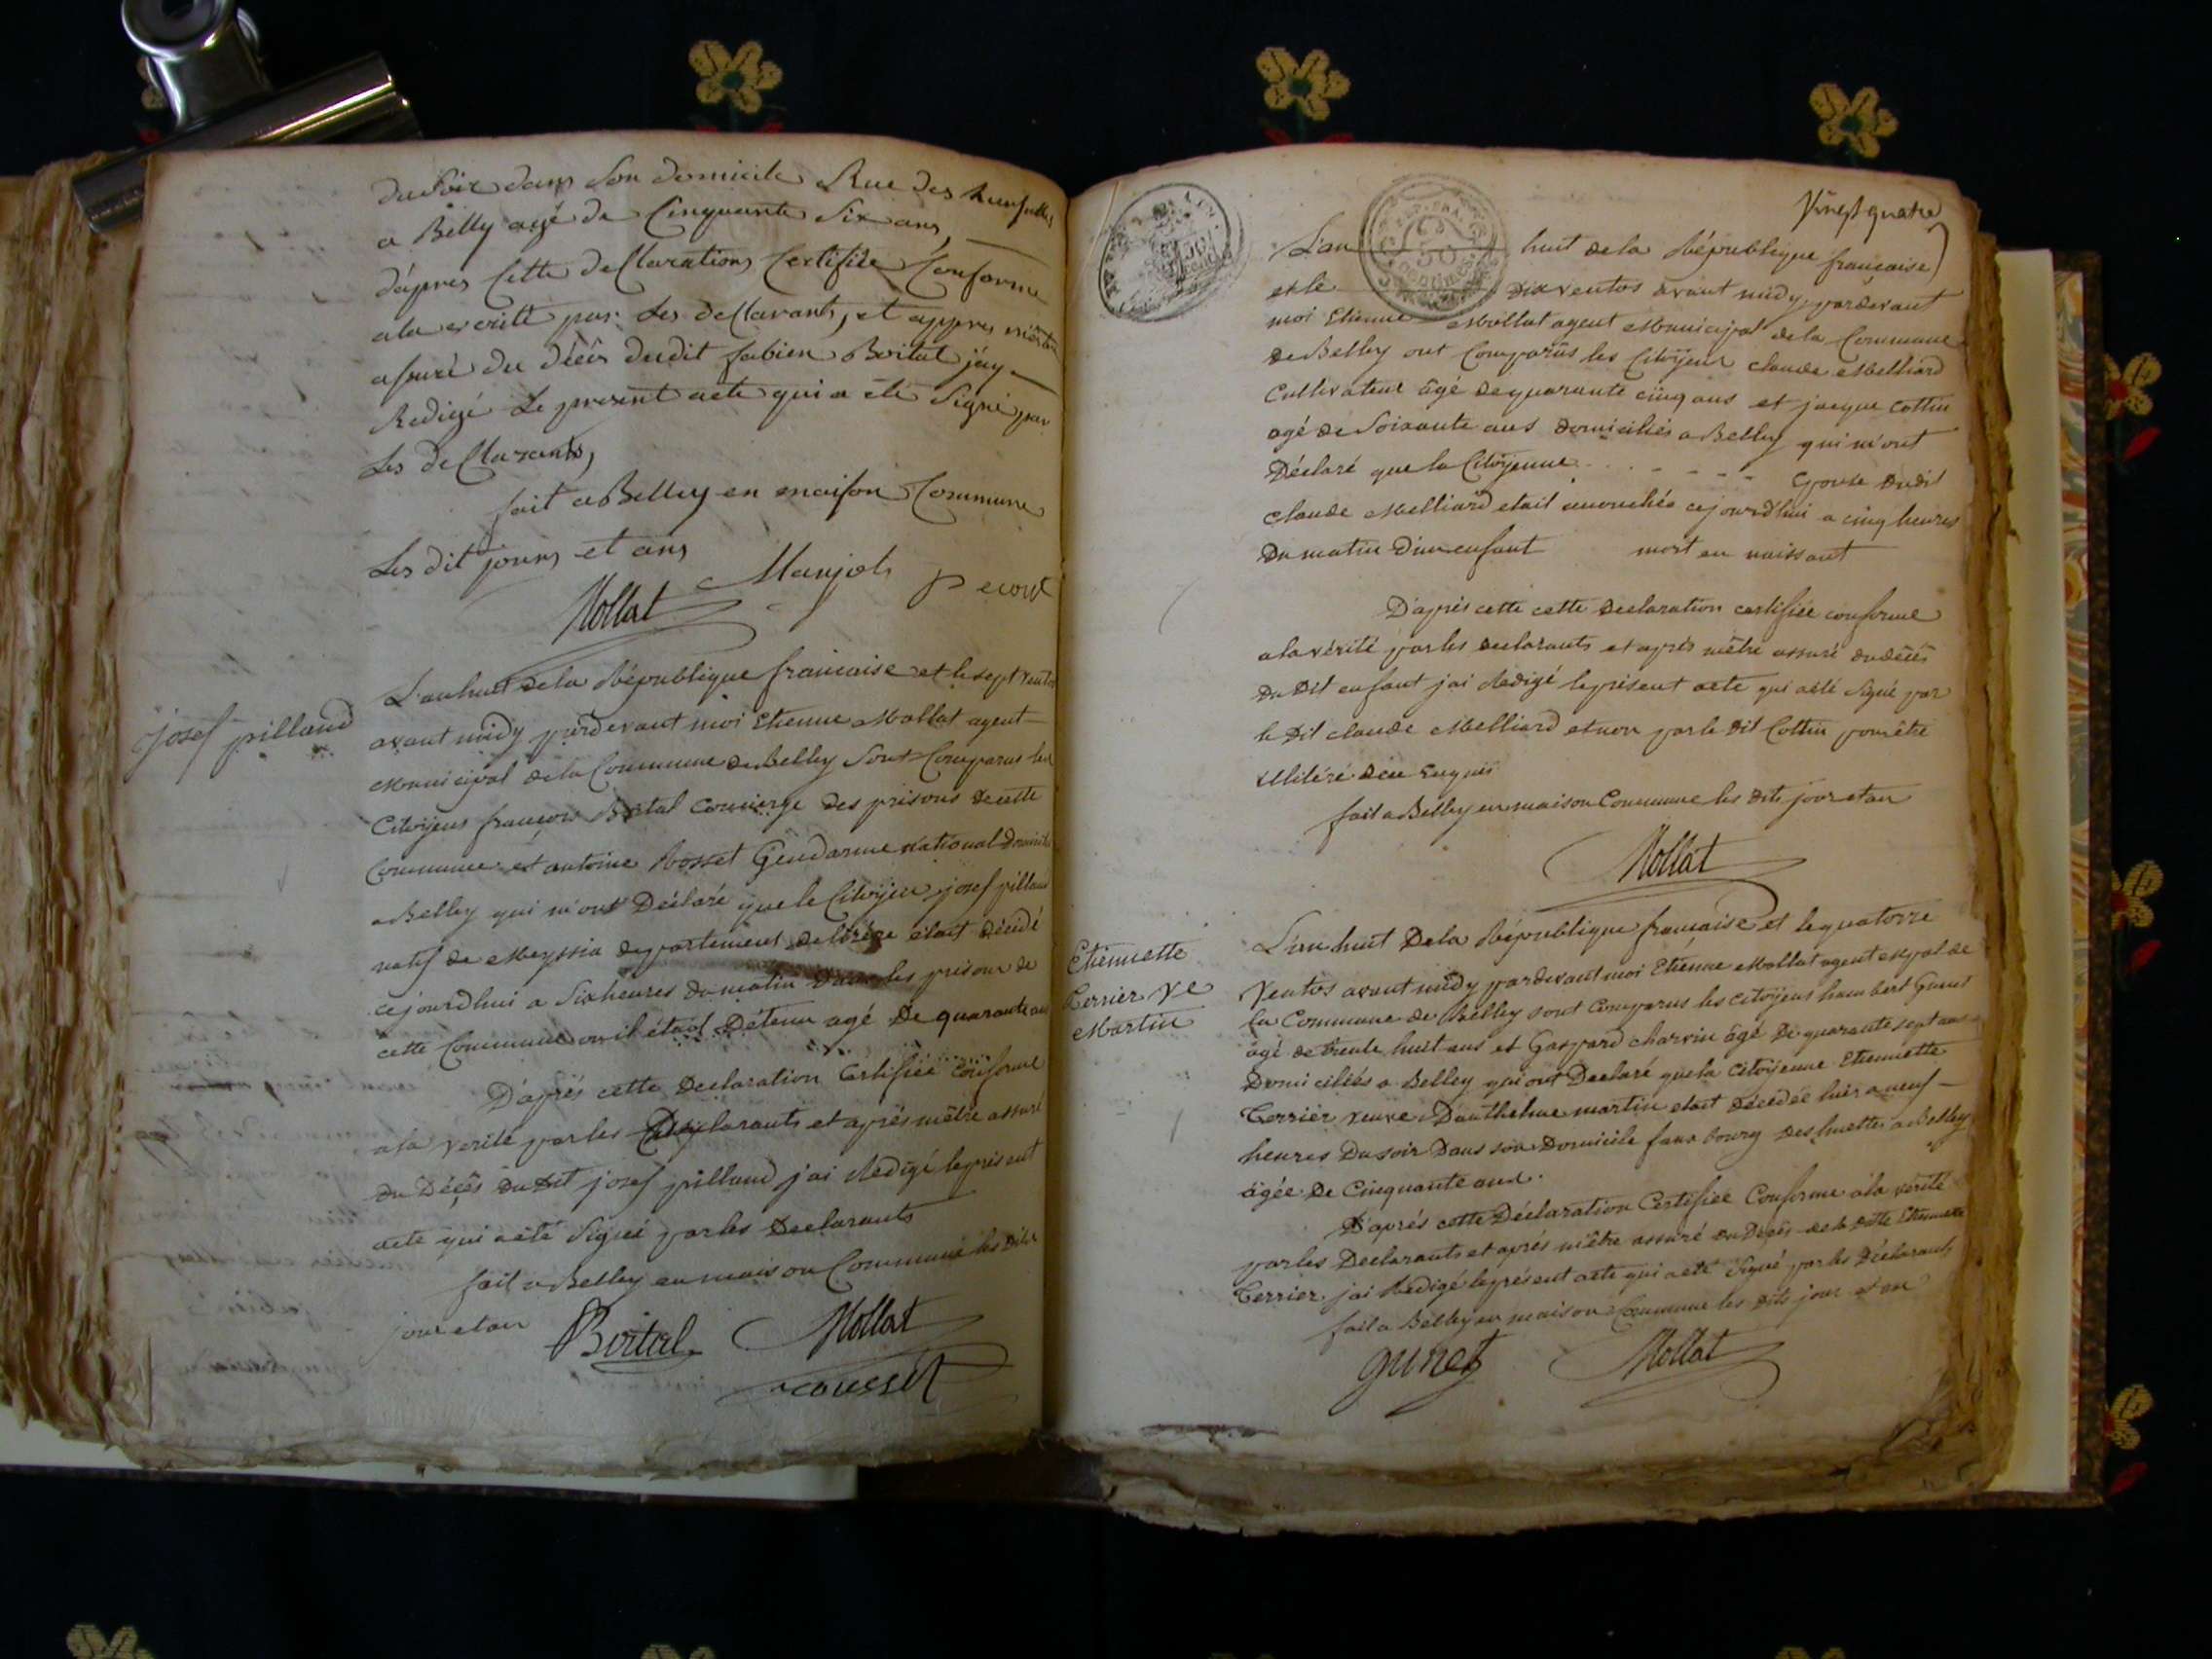 du soir dans son domicile Rue des
a Belley agé de Cinquante Six ans
d'après Cette declaration Certifiée Conforme
a la verité par Les declarants, et appres m'être
assuré du décès dudit fabien Boital j'ay
Redigé Le present acte qui a été Signé par
Les declarants,
fait a Belley en maison Commune
Les dit jours et ans
Mollat Manjot
josef pilland
L'an huit de la République francaise et le sept ventos
avant midy pardevant moi Etienne Mollat agent
Municipal de la Commune de Belley Sont Comparus les
Citoyens françois Boital Concierge des prisons de cette
Commune et antoine Rosset Gendarme national
a Belley qui m'ont Déclaré que le Citoyen josef pilland
natif de Meyssia departement de étoit décédé
cejourdhui a Six heures du matin dans les prisons de
cette Commune ou il étoit Détenu agé De quarante ans
D'après cette Declaration Certifiée conforme
a la verité par les Declarants et après m'être assuré
du Décès du dit josef pilland j'ai Redigé le présent
acte qui a été Signé par les Declarants
fait a Belley en maison Commune les dits
jour et an
Boital Mollat
Rousset
Vingt quatre
L'an huit de la République francaise
et le Dix ventos avant midy pardevant
moi Etienne Mollat agent Municipal de la Commune
de Belley ont Comparus les Citoyens claude Melliard
Cultivateur âgé de quarante cinq ans et jacque Cottin
agé de Soixante ans domiciliés a Belley qui m'ont
Déclaré que la Citoyenne . . . - - - Epouse dudit
claude Melliard etait accouchée cejourdhui a cinq heures
du matin d'un enfant mort en naissant
D'après cette cette declaration certifiée conforme
a la vérité par les declarants et après m'être assuré du décès
du Dit enfant j'ai Redigé le présent acte qui a été Signé par
le Dit claude Melliard et non par le dit Cottin pour être
illitéré de ce enquis
fait a Belley en maison Commune les dits jour et an
Mollat
Etiennette
Terrier Ve
Martin
L'an huit De la République francaise et le quatorze
Ventos avant midy pardevant moi Etienne Mollat agent mpal de
la Commune de Belley sont Comparus les citoyens humbert Gunet
agé de trente huit ans et Gaspard charvin âgé De quarante sept ans
Domiciliés a Belley qui ont Declaré que la Citoyenne Etiennette
Terrier veuve D'anthelme martin etait décédée hier a neuf
heures Du soir Dans son Domicile faux bourg Des huettes a Belley
âgée De Cinquante ans.
D'après cette Déclaration Certifiée Conforme a la vérité
par les Declarants et après m'être assuré du Décès de la ditte Etiennette
Terrier j'ai Redigé le présent acte qui a été Signé par les Déclarants
fait a Belley en maison Commune les dits jour et an
gunet Mollat